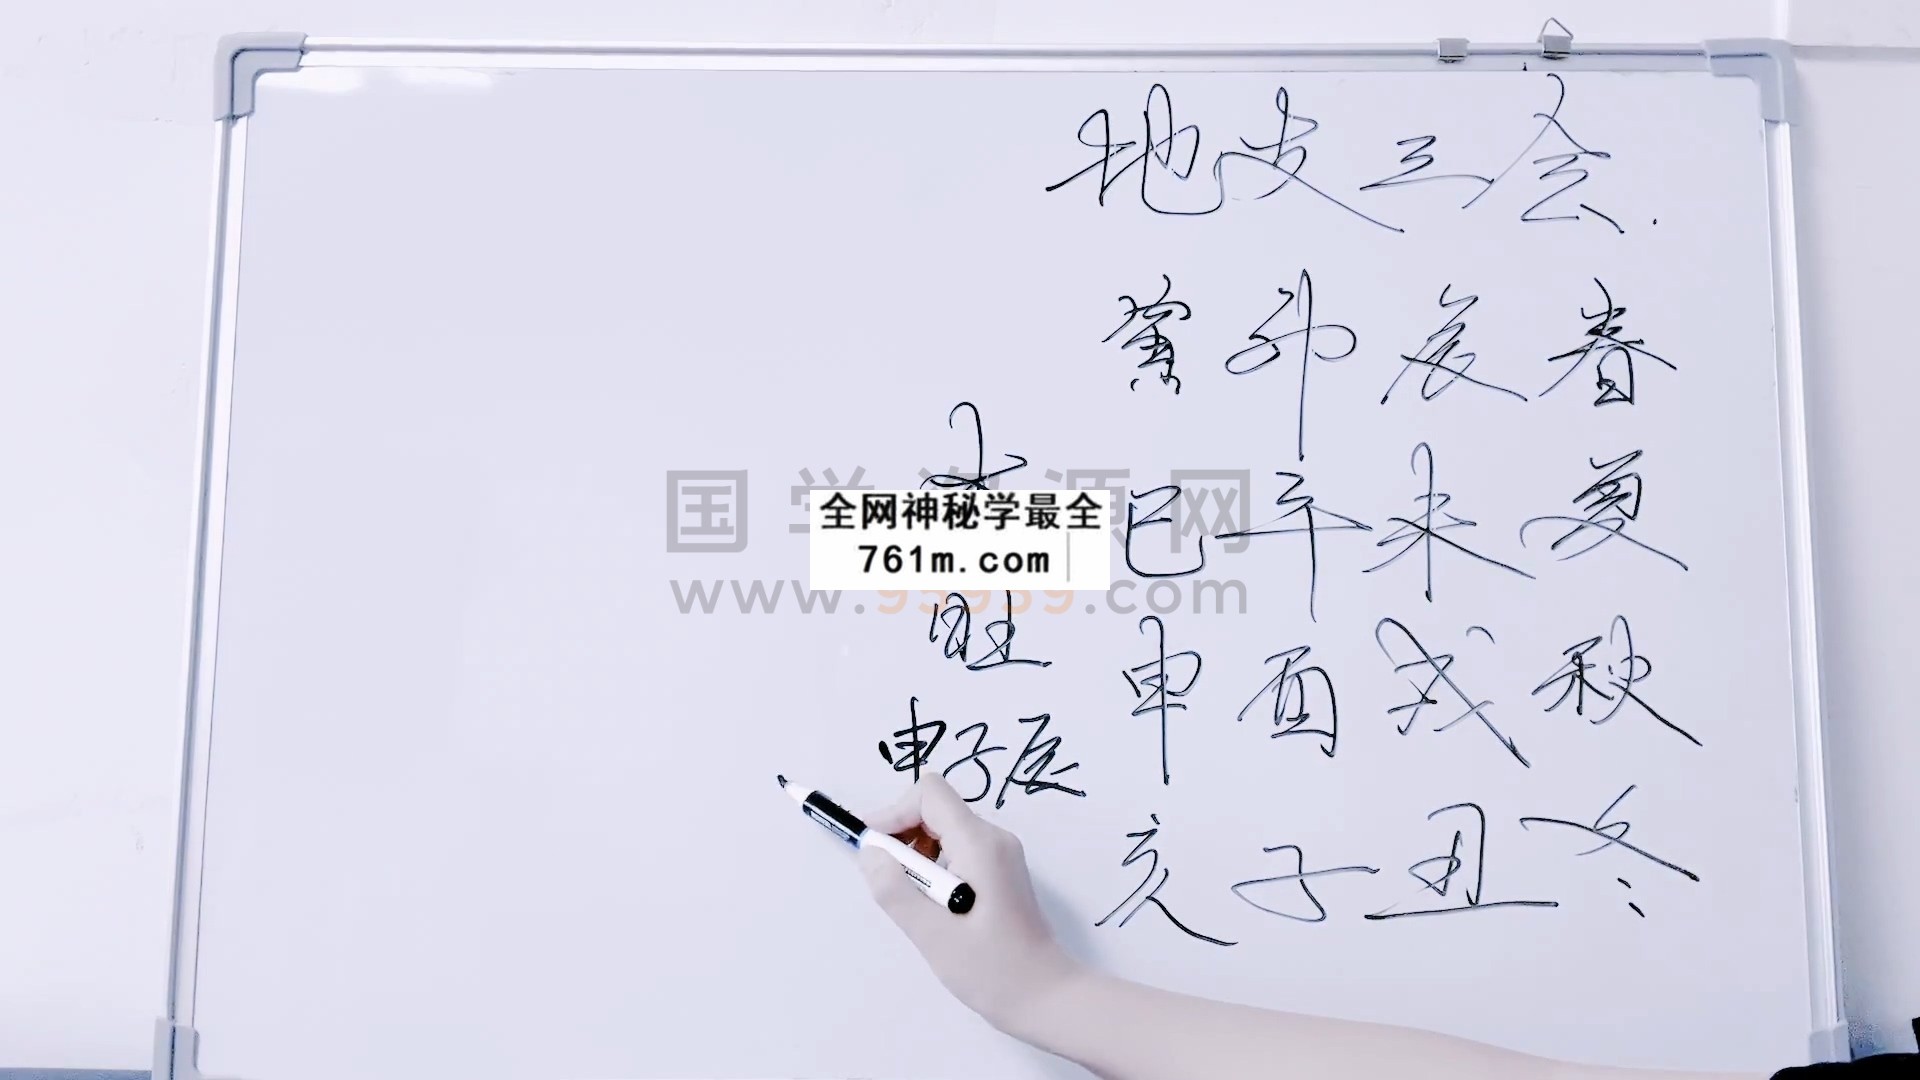 地支三会.
寅卯辰春
巳午未夏
申酉戌秋
亥子丑冬
旺
申子辰
国学资源网
www.95959.com
全网神秘学最全
761m.com